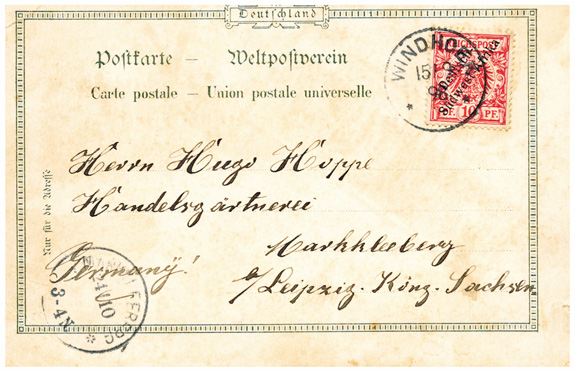 Deutschland
Postkarte – Weltpostverein
Carte postale – Union postale universelle
WINDHOEK
15/9
98
REICHSPOST
Deutsch-
Südwest-Afrika
10 PF
Nur für die Adresse
Herrn Hugo Hoppe
Handelsgärtnerei
Markkleeberg
b/Leipzig. Köng. Sachsen
Germany!
24/10
3-4N